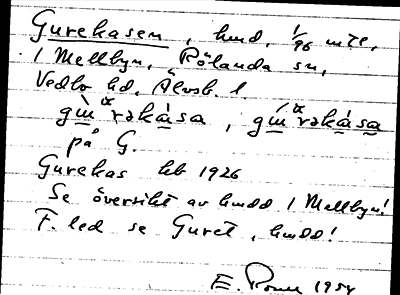 Gurekasen, hmd. 1/96 mtl,
i Mellbyn, Rölanda sn,
Vedbo hd, Älvsb. l.
på G.
Gurekas kb 1926
Se översikt av hmdd i Mellbyn!
F. led se Guret, hmdd!
E. 1954